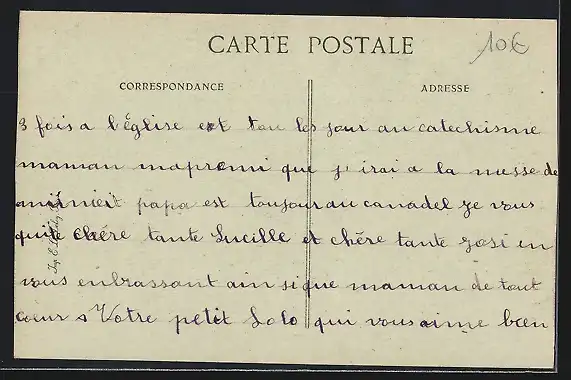 CARTE POSTALE
10€
CORRESPONDANCE
ADRESSE
3 fois a l'église et tou les jour au catechisme
maman mapromi que j'irai a la messe de
minuieit papa est toujour au canadel je vous
quite chére tante Lucille et chére tante josi en
vous enbrassant ainsi que maman de tout
coeur s Votre petit Lolo qui vous aime bien
Imp. E.